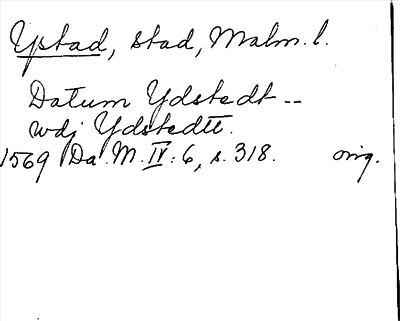 Ystad, stad, Malm. l.
Datum Ydstedt --
wdj Ydstedtt.
1569 Da. M. IV: 6, s. 318. orig.